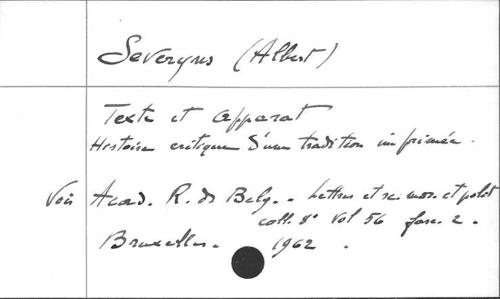 Severyns (Albert)
Texte et apparat
Histoire critique d'une tradition imprimée.
Voir Acad. R. de Belg. - Lettres et sc. mor. et polit
coll. 8° Vol 56 fasc. 2.
Bruxelles. 1962.